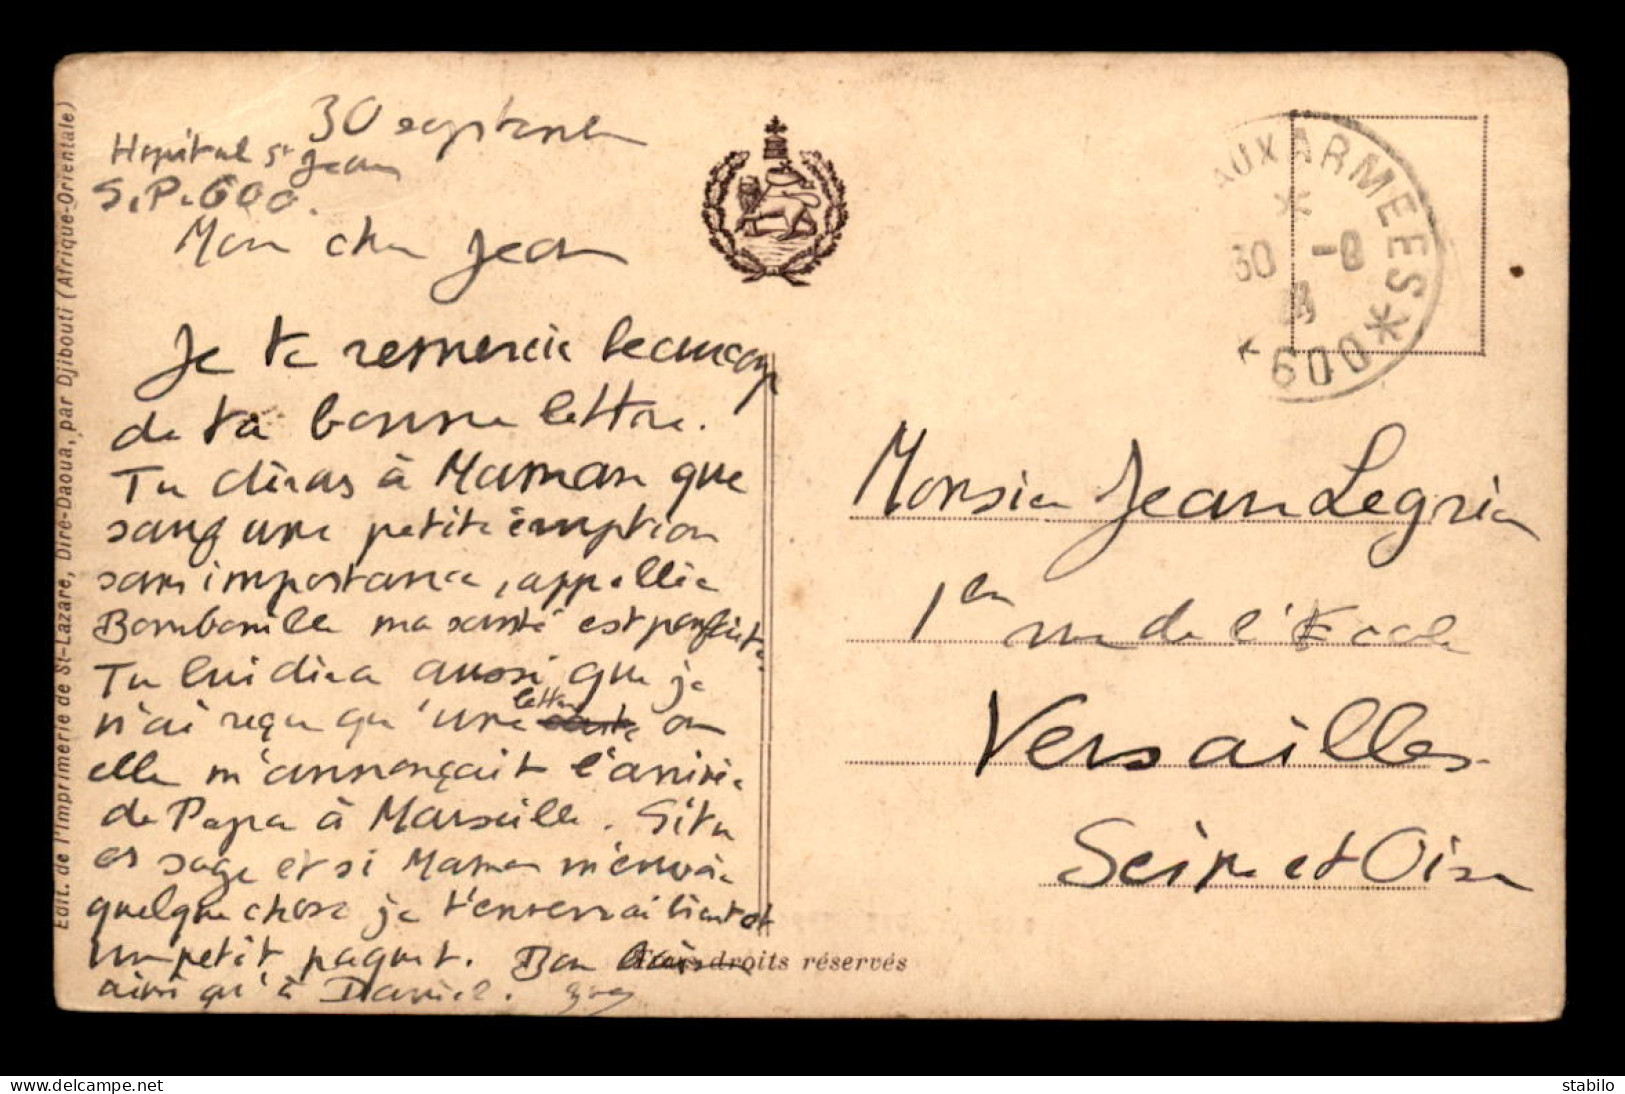 30 septembre
Hopital St Jean
S.P. 600.
Mon cher Jean
Je te remercie beaucoup
de ta bonne lettre.
Tu diras à Maman que
sauf une petite éruption
sans importance, appellée
Bourbouille ma santé est parfaite.
Tu lui diras aussi que je
n'ai reçu qu'une lettre où
elle m'annonçait l'arrivée
de Papa à Marseille. Si tu
es sage et si Maman m'envoie
quelque chose je t'enverrai bientot
un petit paquet. Bon
ainsi qu'à Daniel.
Edit. de l'Imprimerie de St-Lazare, Dire-Daoua, par Djibouti (Afrique-Orientale)
Tous droits réservés
AUX ARMEES
30 -8
600
Monsieur Jean Legrain
1 rue de l'Ecole
Versailles
Seine et Oise
stabilo